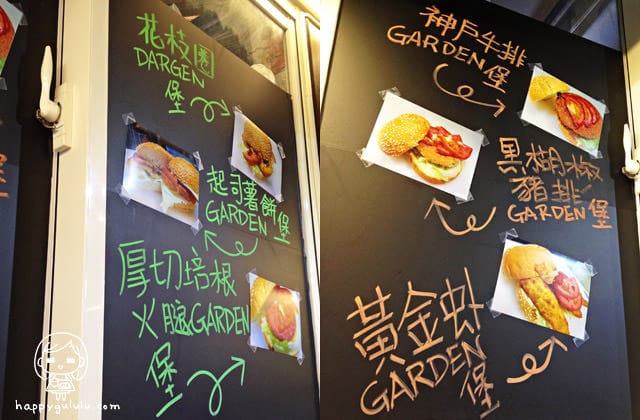 花枝圈
DARGEN
堡
起司薯餅
GARDEN堡
厚切培根
火腿GARDEN
堡
神戶牛排
GARDEN堡
黑胡椒
豬排
GARDEN堡
黃金虾
GARDEN
堡
happygululu.com